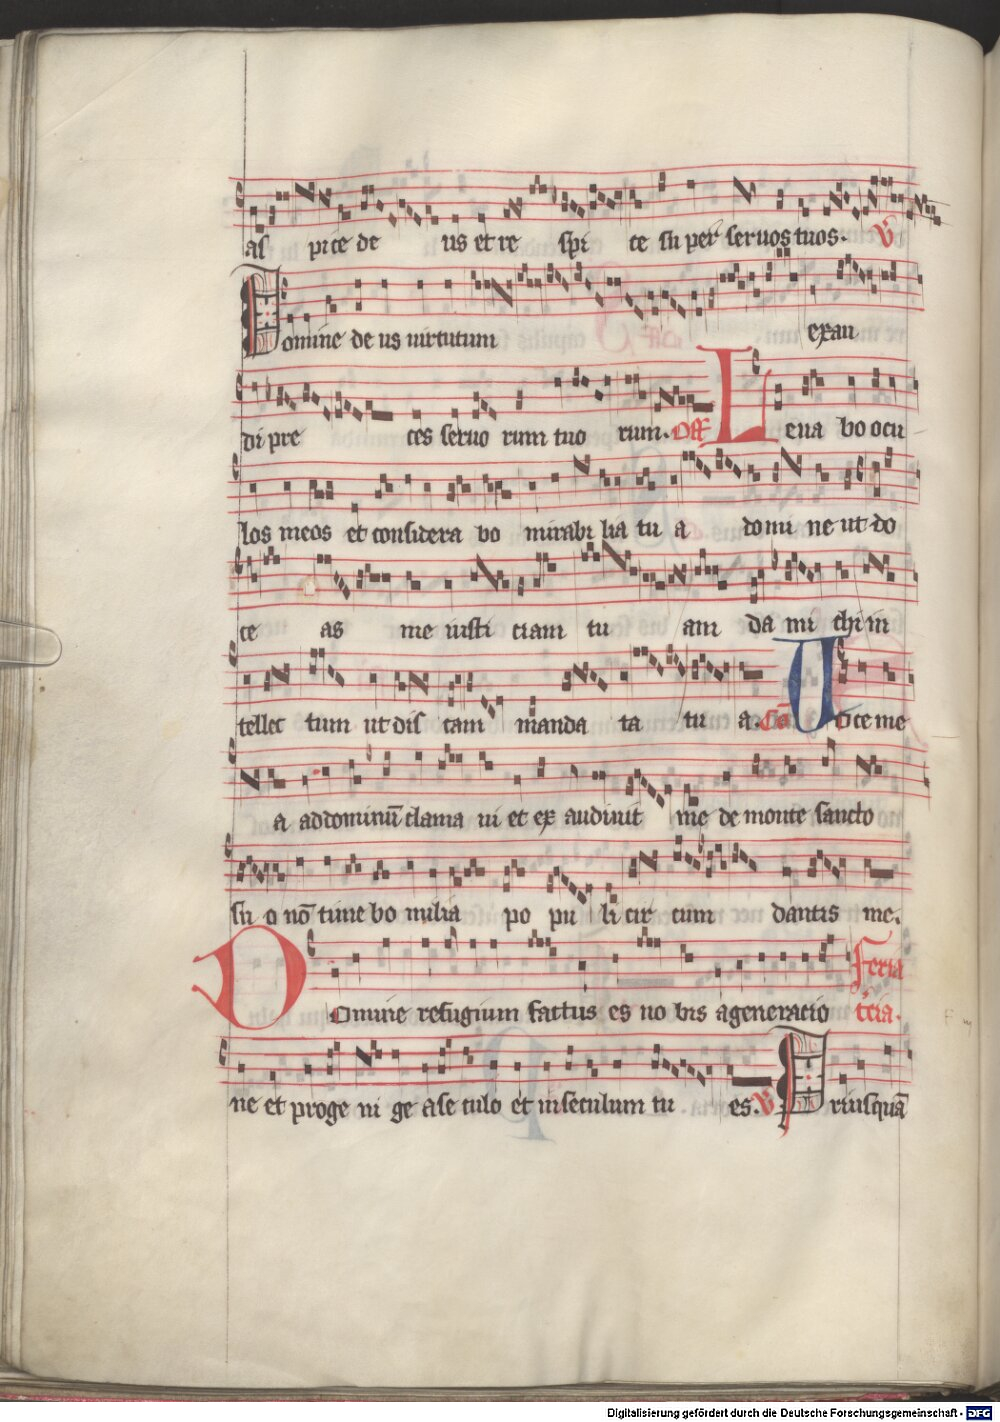 as pice de us et re spi ce su per seruos tuos. V
Domine de us uirtutum exau
di pre ces seruo rum tuo rum. Off Leua bo ocu
los meos et considera bo mirabi lia tu a domi ne ut do
ce as me iusti ciam tu am da mi chi in
tellec tum ut dis cam manda ta tu a. Cō Uoce me
a ad dominū clama ui et ex audiuit me de monte sancto
su o nō time bo milia po pu li cir cum dantis me.
Domine refugium factus es no bis a generacio Feria
ne et proge ni ge a se culo et in seculum tu es. V Priusquā
tcia.
Digitalisierung gefördert durch die Deutsche Forschungsgemeinschaft - DFG